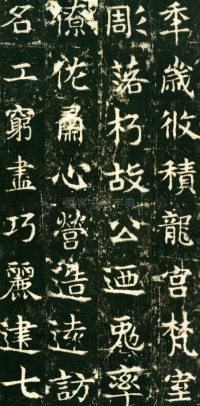 秊歲攸積龍宮梵室
彫落朽故公迺率
僚佐肅心營造遠訪
名工窮盡巧麗建七